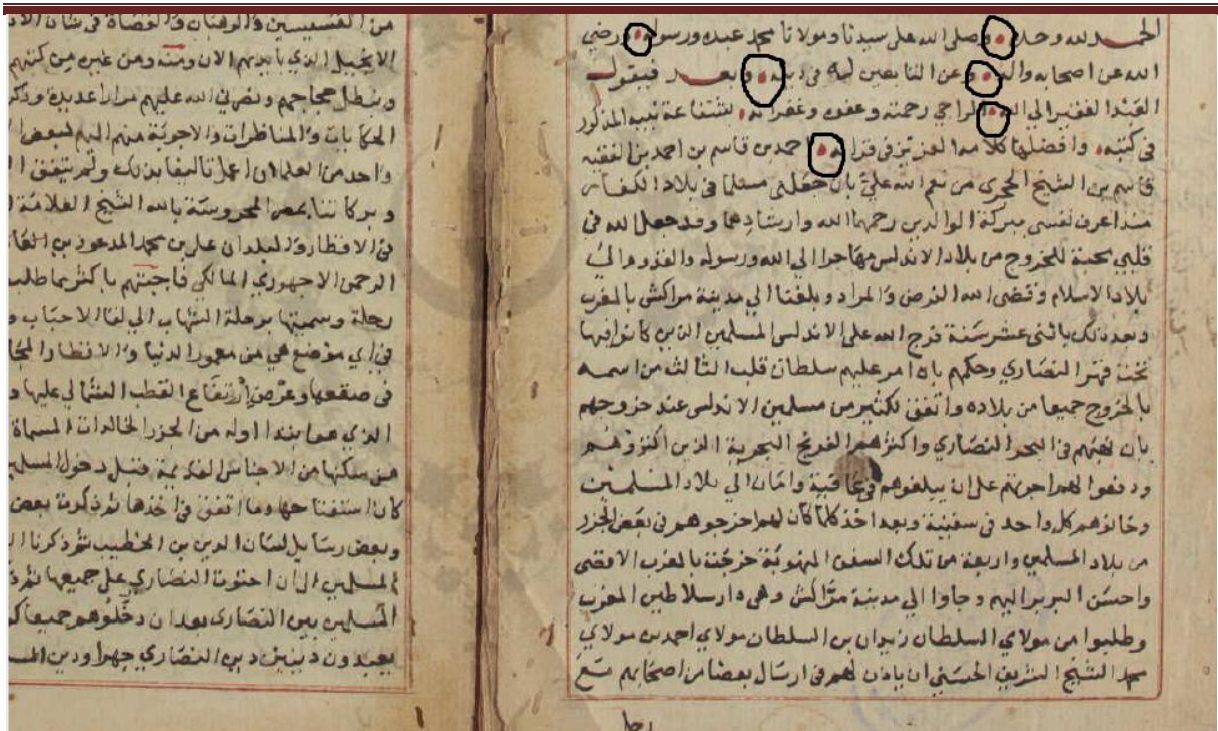 الحمد لله وحده وصلى الله على سيدنا ومولانا محمد عبده ورسوله ورضي
الله عن اصحابه واله وعن التابعين له في دينه وبعد فيقول
العبد الفقير الي الله الراجي رحمته وعفوه وغفرانه لشفاعة نبيه المذكور
في كتبه وافضلها كلامه العزيز في قرانه احمد بن قاسم بن احمد بن الفقيه
قاسم بن الشيخ الحجري من نعم الله علي بان جعلني مسلما في بلاد الكفار
منذ اعرف نفسي ببركة الوالدين رحمهما الله وارشادهما وقد جعل الله في
قلبي محبة للخروج من بلاد الاندلس مهاجرا الي الله ورسوله والقدوم الي
بلاد الاسلام وقضى الله الغرض والمراد وبلغنا الي مدينة مراكش بالمغرب
وبعد ذلك باثنى عشر سنة فرج الله على الاندلس المسلمين الذين كانوا فيها
تحت قهر النصاري وحكمهم بان امر عليهم سلطان فلب الثالث من اسمه
بالخروج جميعا من بلاده واتفق لكثير من مسلمين الاندلس عند خروجهم
بان نهبهم في البحر النصاري واكثرهم الفرنج البحرية الذين اكتروهم
ودفعوا لهم اجرتهم على ان يبلغوهم في عافية وامان الي بلاد المسلمين
وخانوهم كل واحد في سفينة وبعد اخذ كلما كان لهم اخرجوهم في بعض الجزر
من بلاد المسلمين واربعة من تلك السفن المنهوبة خرجت بالمغرب الاقصى
واحسن البربر اليهم وجاوا الي مدينة مراكش وهي دار سلاطين المغرب
وطلبوا من مولاي السلطان زيدان بن السلطان مولاي احمد بن مولاي
محمد الشيخ الشريف الحسني ان ياذن لهم في ارسال بعضا من اصحابهم مع
رجل
من القسيسين والرهبان والقضاة في شان الاد
الانجيل الذي بايديهم الان ومنه ومن غيره من كتبهم
ويبطل حجاجهم ونصرني الله عليهم مرارا عديدة وذكر
الحكايات والمناظرات والاجوبة منهم اليهم لبعض ا
واحد من العلما ان اعمل تاليفا بذلك ولم يتفق ا
وبركاتنا بمصر المحروسة بالله الشيخ العلامة ا
في الاقطار والبلدان علي بن محمد المدعو زين العا
الرحمن الاجهوري المالكي فاجبتهم باكثر مما طلب
رحلة وسميتها برحلة الشهاب الي لقا الاحباب و
في اي موضع هي من معمور الدنيا والاقطار المجا
في صقعها وعرض ارتفاع القطب الشمالي عليها و
الذي هو ابتدا اوله من الجزر الخالدات المسماة
من ملكها من الاجناس القديمة قبل دخول المسلم
كان استفتاحها وما اتفق في اخذها ثم ذكرت بعض
وبعض رسايل لسان الدين بن الخطيب ثم ذكرنا ا
المسلمين الي ان احتوت النصاري على جميعها ثم ذ
المسلمين بين النصاري بعد ان دخلوهم جميعا كر
يعبدون دينين دين النصاري جهرا ودين المسـ